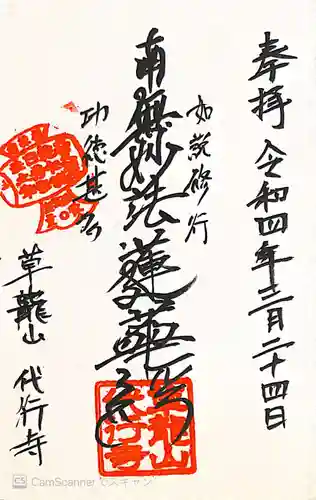 奉拝 令和四年三月二十四日
如説修行
南無妙法蓮華経
功徳甚多
草龍山 代行寺
CS CamScanner でスキャン